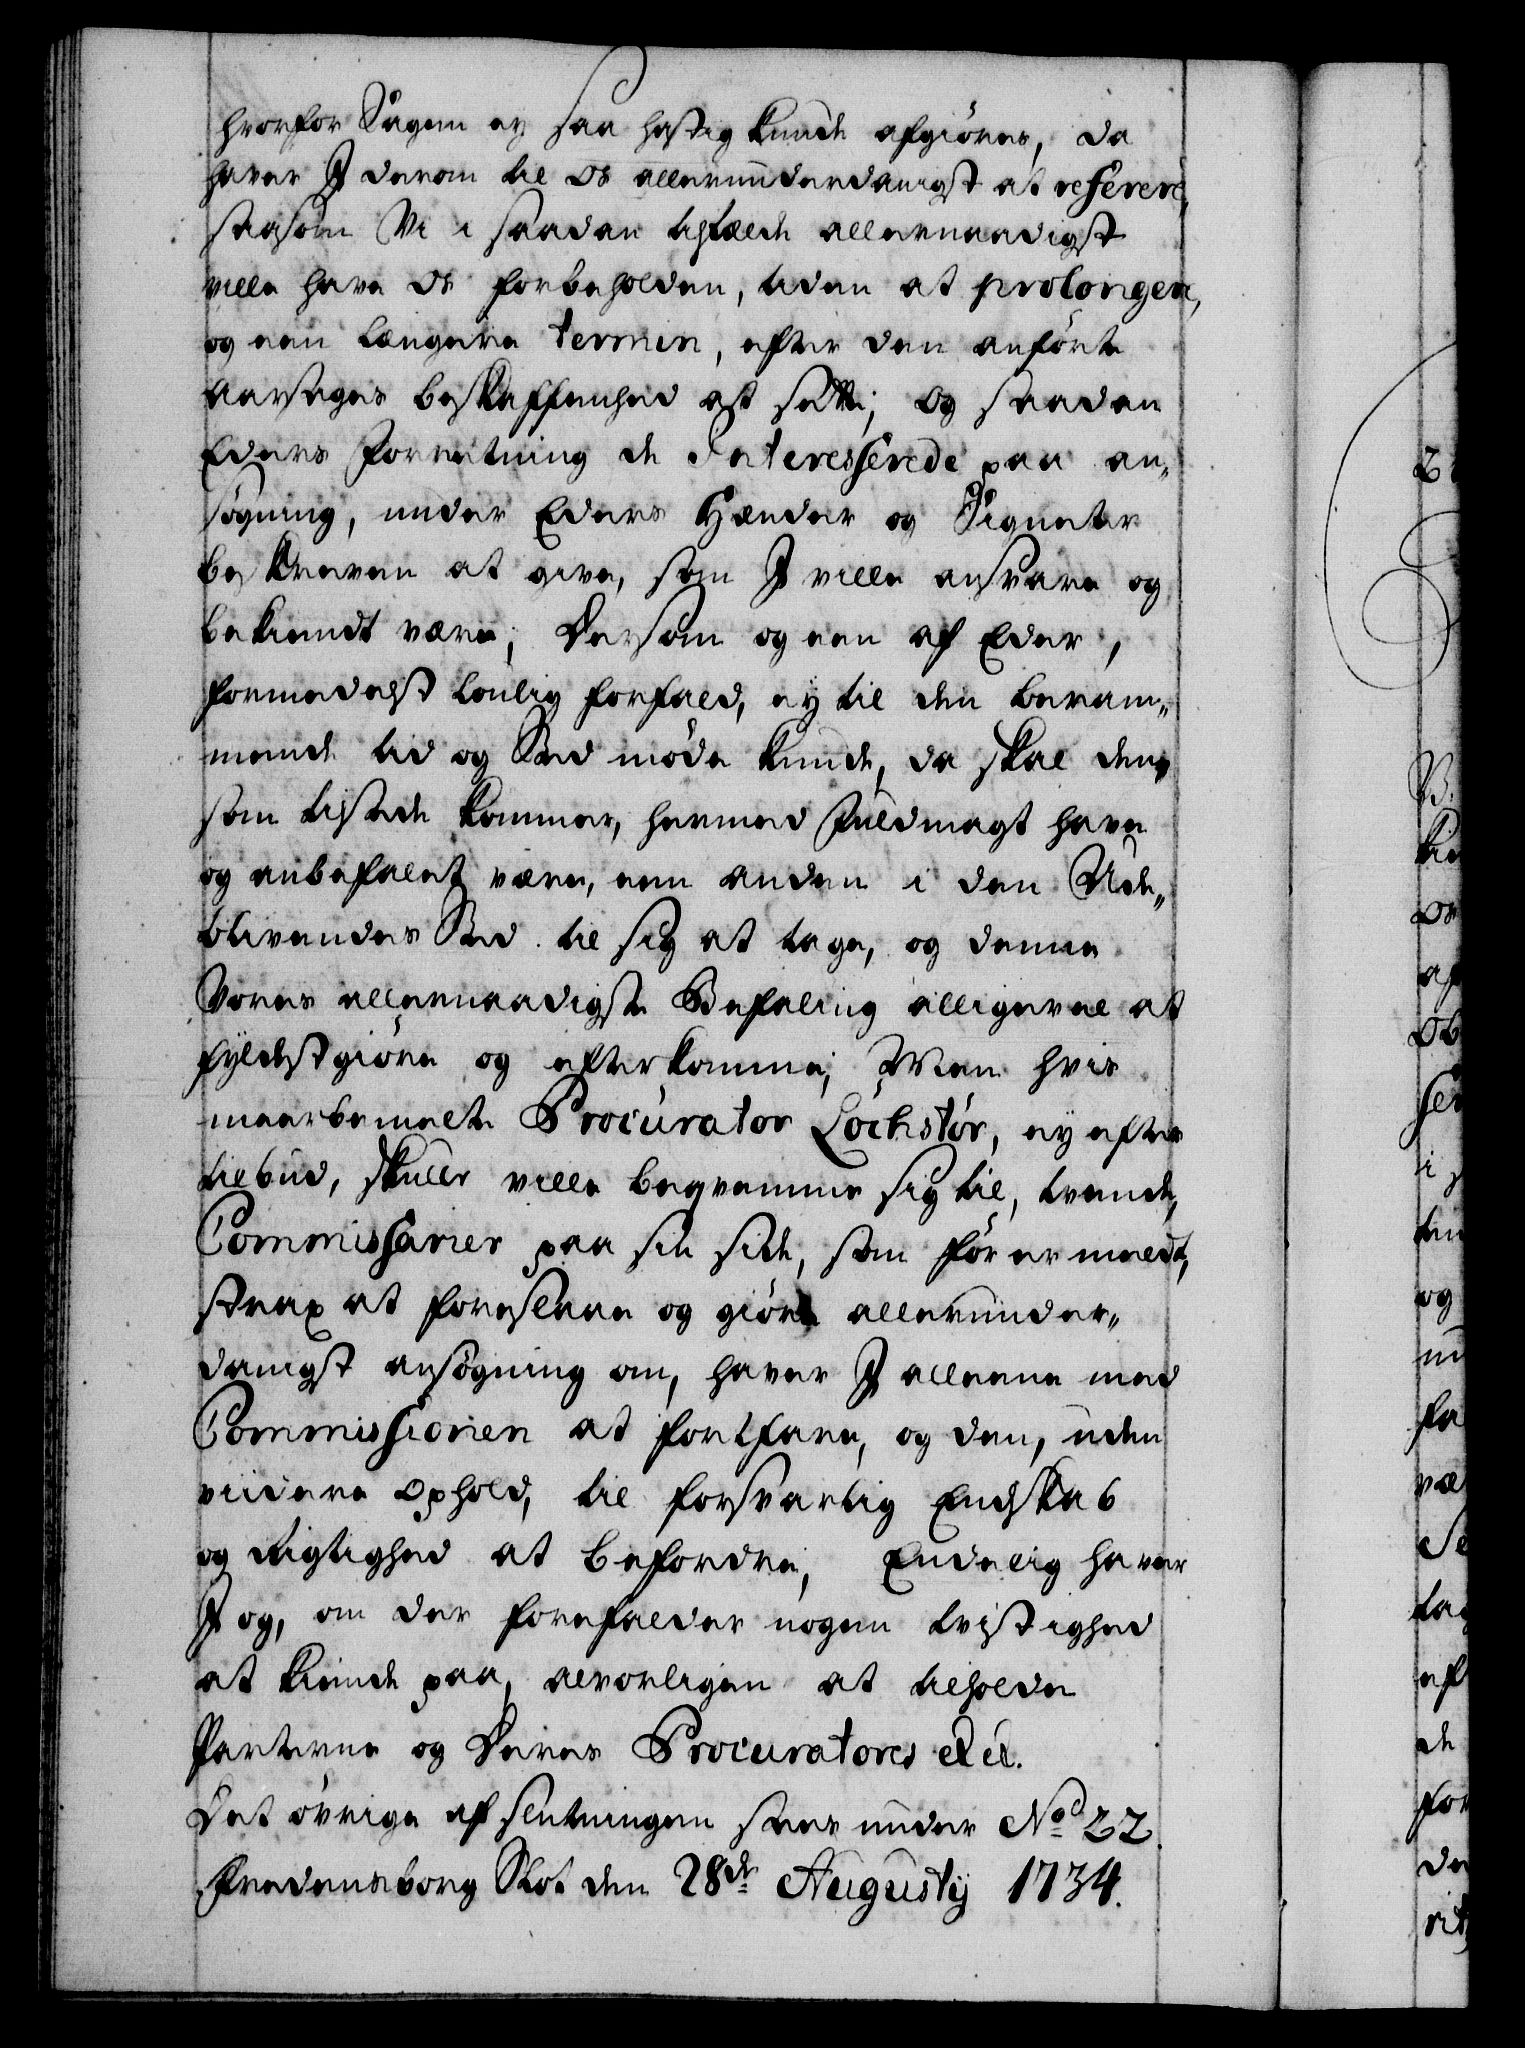 hvorfor Sagen ey saa hastig kunde afgiöres, da
haver I derom til os allerunderdanigst at referere,
saasom Vi i saadan tilfælde allernaadigst
ville have os forbeholden, tiden at prolongere,
og een længere termin, efter den anförte
aarsages beskaffenhed at sætte; og saadan
Eders forretning de Interesserede paa an-
søgning, under Eders Hænder og Signeter
beskreven at give, som I ville ansvare og
bekiendt være; Dersom og een af Eder,
formedelst louglig forfald, ey til den beram-
mende tid og Sted møde kunde, da skal den,
som tilstede kommer, hermed fuldmagt have
og anbefalet være, een anden i den Ude-
blivendes Sted til sig at tage, og denne
Vores allernaadigste Befaling alligevel at
fyldestgiöre og efterkomme; Men hvis
meerbemelte Procurator Lochstør, ey efter
tilbud, skulle ville beqvemme sig til, tvende,
Commissarier paa sin side, som før er meldt,
strax at foreslaae og giöre allerunder-
danigst ansøgning om, haver I alleene med
Commissionen at fortfare, og den, uden
viidere ophold, til forsvarlig Endskab
og rigtighed at befordre; Endelig haver
I og, om der forefalder nogen tvistighed
at kiende paa, alvorligen at tilholde
Parterne og Deres Procuratores etc.
Det övrige af slutningen sees under No 22.
Fredensborg Slot den 28de Augustij 1734.